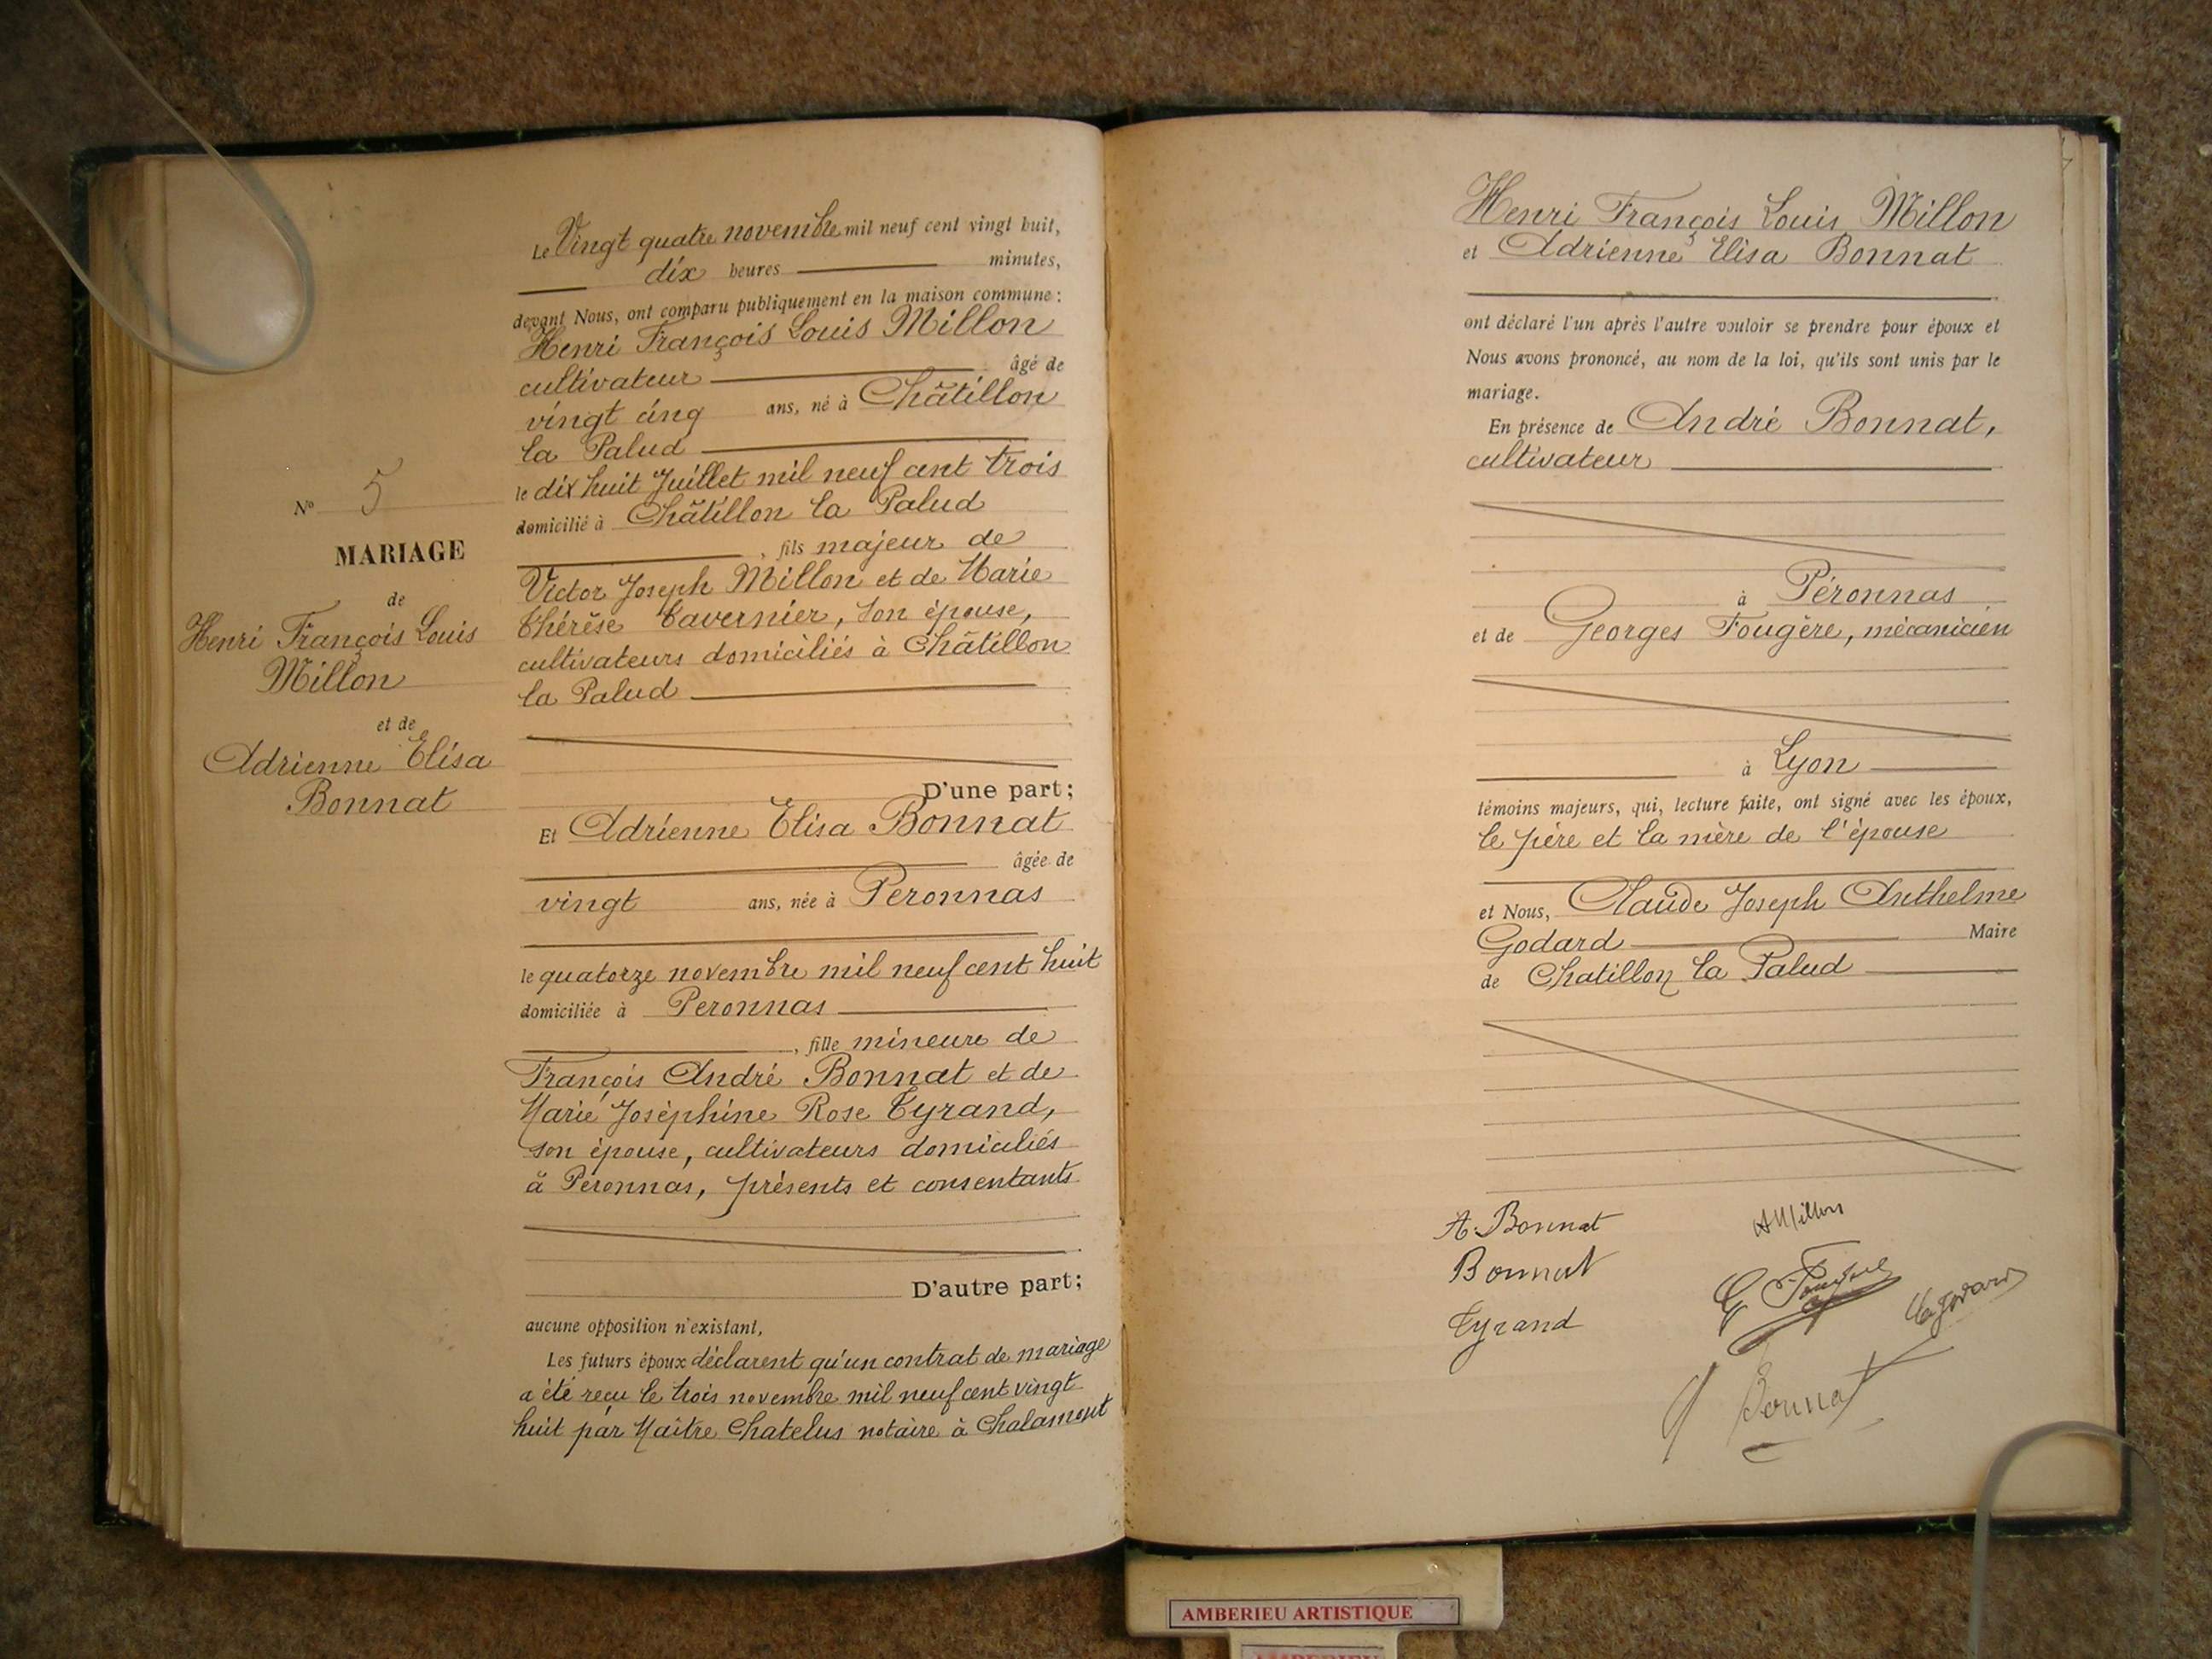 N° 5
MARIAGE
de
Henri François Louis
Millon
et de
Adrienne Elisa
Bonnat
Le Vingt quatre novembre mil neuf cent vingt huit,
dix heures minutes,
devant Nous, ont comparu publiquement en la maison commune :
Henri François Louis Millon
cultivateur âgé de
vingt cinq ans, né à Châtillon
la Palud
le dix huit Juillet mil neuf cent trois
domicilié à Châtillon la Palud
, fils majeur de
Victor Joseph Millon et de Marie
Thérèse Tavernier, son épouse,
cultivateurs domiciliés à Châtillon
la Palud
D'une part;
Et Adrienne Elisa Bonnat
âgée de
vingt ans, née à Peronnas
le quatorze novembre mil neuf cent huit
domiciliée à Peronnas
, fille mineure de
François André Bonnat et de
Marie Joséphine Rose Tyrand,
son épouse, cultivateurs domiciliés
à Péronnas, présents et consentants
D'autre part;
aucune opposition n'existant,
Les futurs époux déclarent qu'un contrat de mariage
a été reçu le trois novembre mil neuf cent vingt
huit par Maître Chatelus notaire à Chalamont
Henri François Louis Millon
et Adrienne Elisa Bonnat
ont déclaré l'un après l'autre vouloir se prendre pour époux et
Nous avons prononcé, au nom de la loi, qu'ils sont unis par le
mariage.
En présence de André Bonnat,
cultivateur
à Péronnas
et de Georges Fougère, mécanicien
à Lyon
témoins majeurs, qui, lecture faite, ont signé avec les époux,
le père et la mère de l'épouse
et Nous, Claude Joseph Anthelme
Godard Maire
de Chatillon la Palud
A. Bonnat
Bonnat
Tyrand
H Millon
G Fougère
Godard
Bonnat
AMBERIEU ARTISTIQUE
AMBERIEU